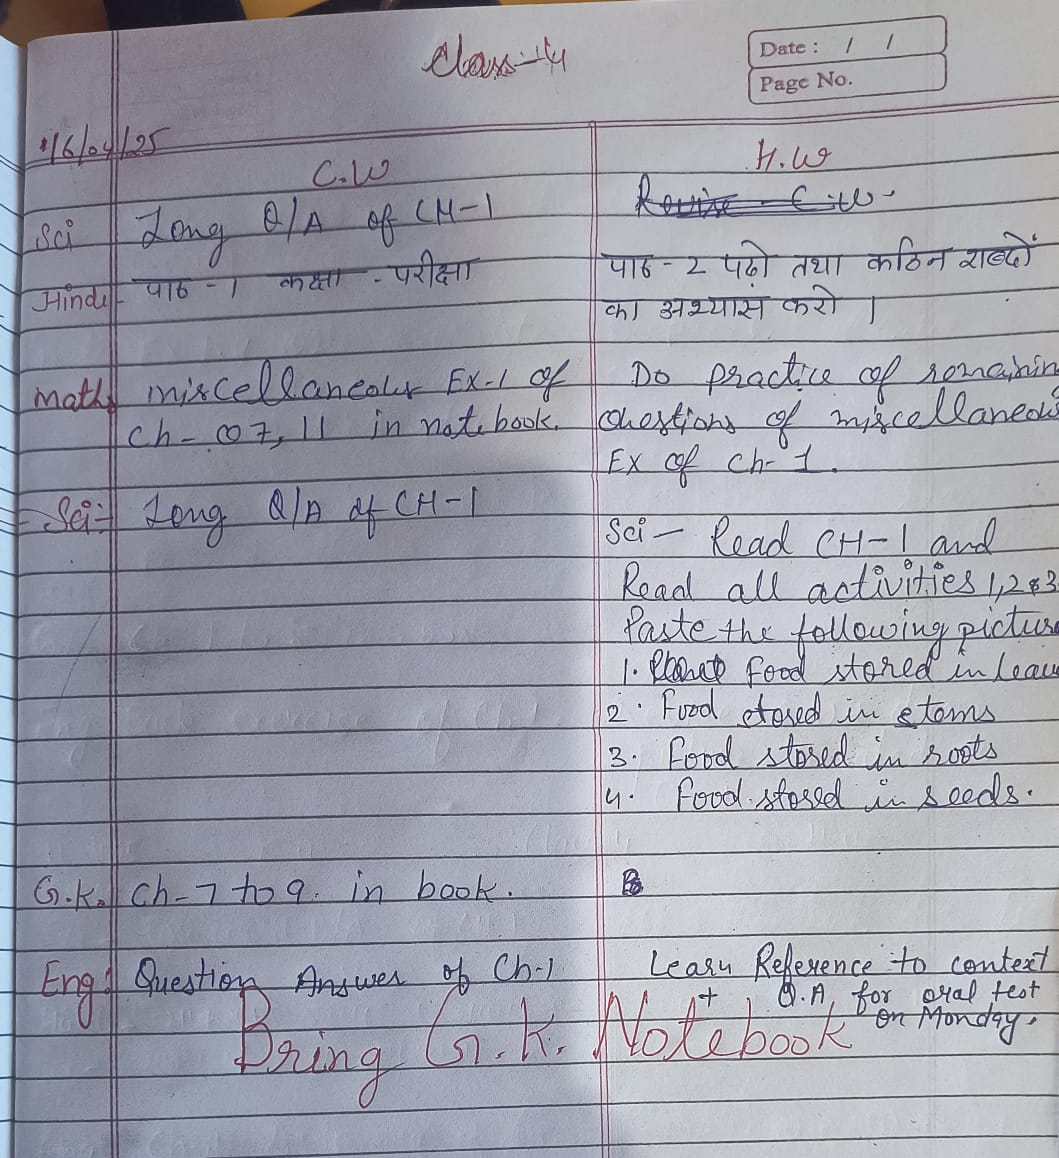 Class-4
Date : / /
Page No.
16/04/25
C.W
H.W
Sci Long Q/A of CH-1
Revise C.W-
Hindi- पाठ-1 कक्षा - परीक्षा
पाठ-2 पढ़ो तथा कठिन शब्दों
का अभ्यास करो ।
Math miscellaneous Ex-1 of
Ch- Q7, 11 in notebook.
Do practice of remainin
Questions of miscellaneou
Ex of Ch-1.
Sci- Long Q/A of CH-1
Sci- Read CH-1 and
Read all activities 1,2 &3
Paste the following picture
1. Food stored in leav
2. Food stored in stems
3. Food stored in roots
4. Food stored in seeds.
G.K. Ch-7 to 9. in book.
Eng Question Answer of Ch-1
Learn Reference to context
+ Q.A, for oral test
on Monday.
Bring G.K. Notebook